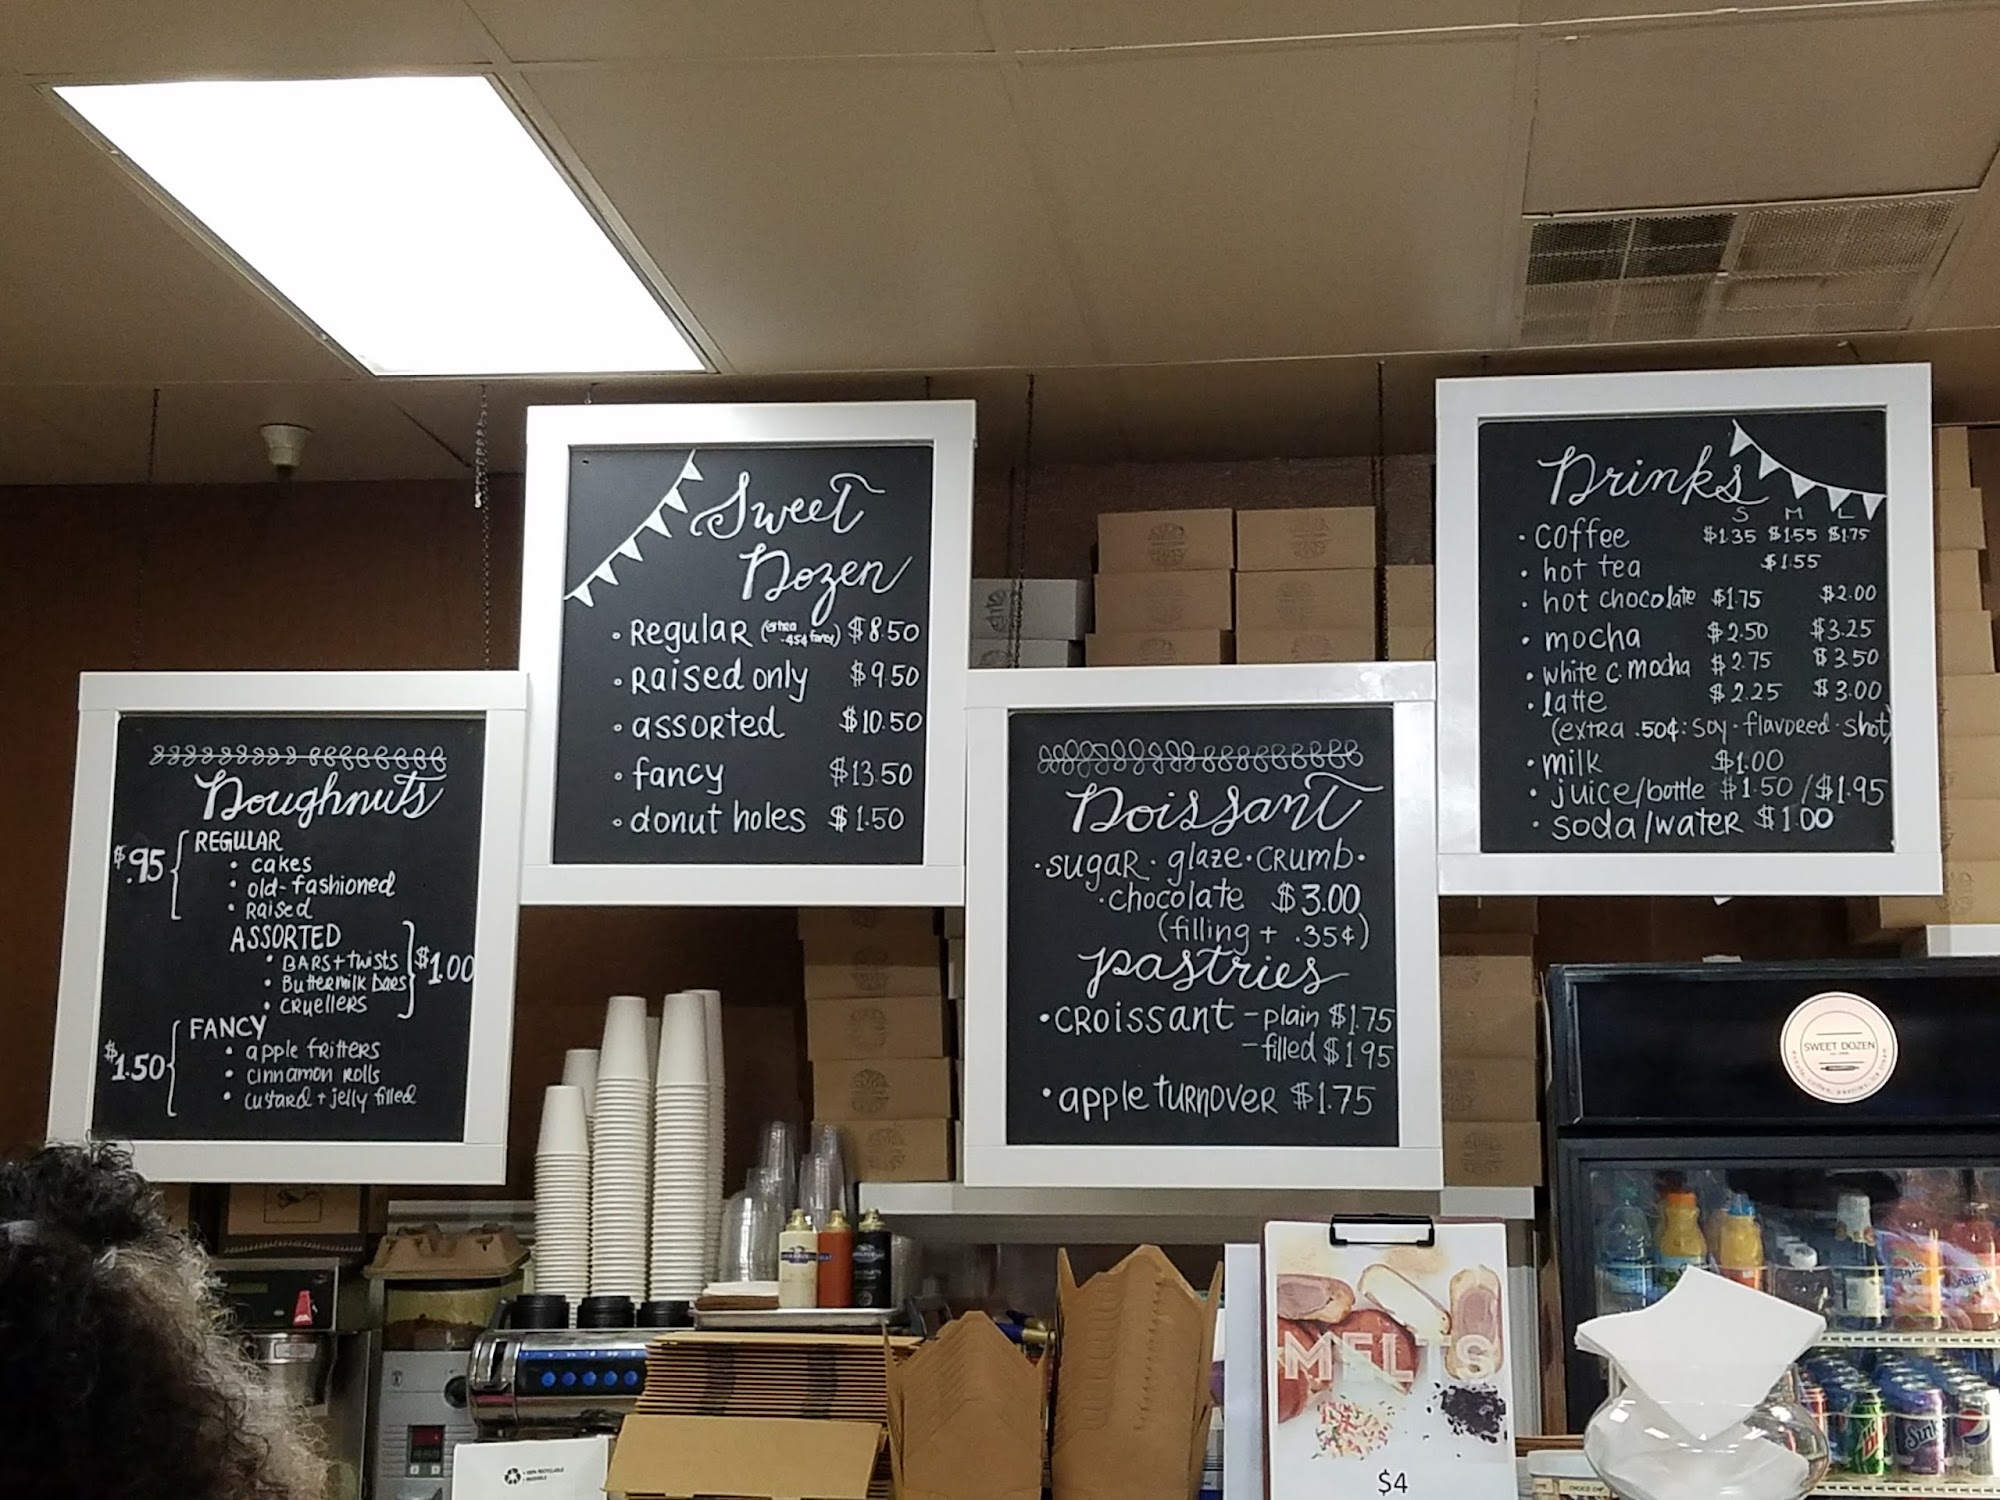 Doughnuts
$.95
REGULAR
• cakes
• old-fashioned
• Raised
ASSORTED
• BARS + twists
• Buttermilk bars
• CRUELLERS
$1.00
FANCY
$1.50
• apple fritters
• cinnamon rolls
• custard + jelly filled
Sweet
Dozen
• Regular (extra .45¢ fancy) $8.50
• Raised only $9.50
• assorted $10.50
• fancy $13.50
• donut holes $1.50
Doissant
• sugar • glaze • crumb •
• chocolate $3.00
(filling + .35¢)
pastries
• CROISSANT - plain $1.75
- filled $1.95
• apple turnover $1.75
Drinks
S M L
• coffee $1.35 $1.55 $1.75
• hot tea $1.55
• hot chocolate $1.75 $2.00
• mocha $2.50 $3.25
• white c. mocha $2.75 $3.50
• latte $2.25 $3.00
(extra .50¢: soy • flavored • shot)
• milk $1.00
• juice/bottle $1.50 / $1.95
• soda/water $1.00
SWEET DOZEN
MELTS
$4